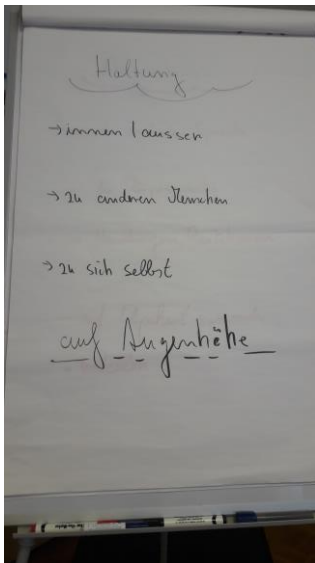 Haltung
→ innen / aussen
→ zu anderen Menschen
→ zu sich selbst
auf Augenhöhe